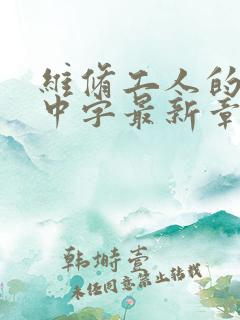 维修工人的
中字最新章
韩埘壹
未经同意禁止转载